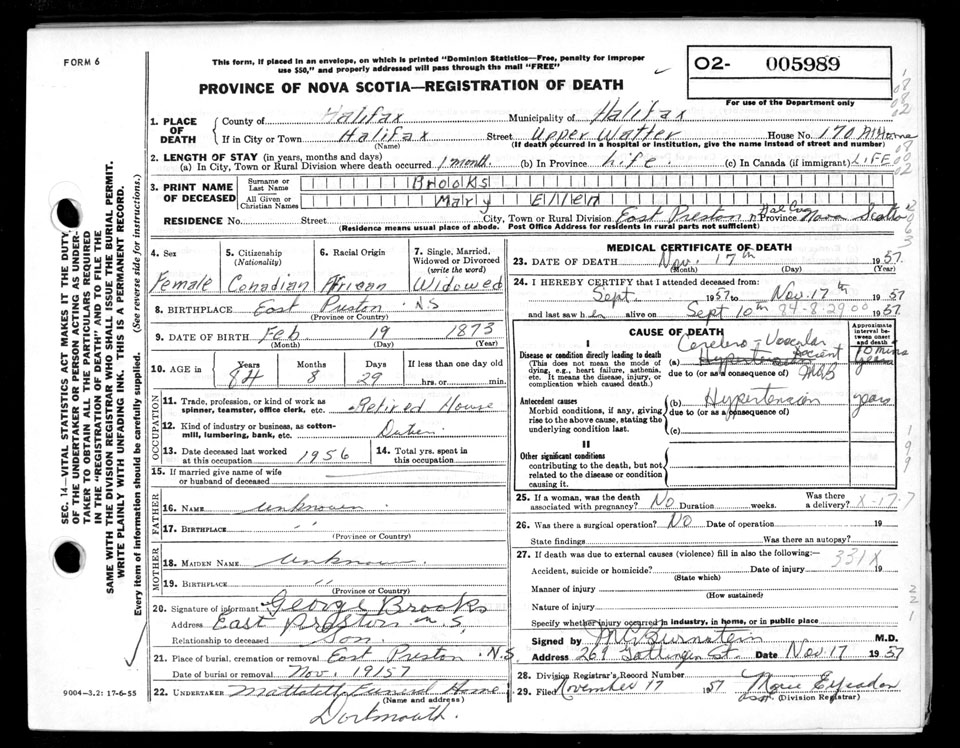 FORM 6
This form, if placed in an envelope, on which is printed "Dominion Statistics—Free, penalty for improper
use $50," and properly addressed will pass through the mail "FREE"
02- 005989
For use of the Department only
PROVINCE OF NOVA SCOTIA—REGISTRATION OF DEATH
1. PLACE OF DEATH
County of Halifax Municipality of Halifax
If in City or Town Halifax Street Upper Watter House No. 170 At Home
(Name) (If death occurred in a hospital or institution, give the name instead of street and number)
2. LENGTH OF STAY (in years, months and days)
(a) In City, Town or Rural Division where death occurred 1 month. (b) In Province Life. (c) In Canada (if immigrant) LIFE
3. PRINT NAME OF DECEASED
Surname or Last Name Brooks
All Given or Christian Names Mary Ellen
RESIDENCE No. Street City, Town or Rural Division East Preston Province Nova Scotia
(Residence means usual place of abode. Post Office Address for residents in rural parts not sufficient)
4. Sex Female
5. Citizenship (Nationality) Canadian
6. Racial Origin African
7. Single, Married, Widowed or Divorced (write the word) Widowed
8. BIRTHPLACE East Preston N S
(Province or Country)
9. DATE OF BIRTH Feb 19 1873
(Month) (Day) (Year)
10. AGE in Years 84 Months 8 Days 29 If less than one day old
hrs. or min.
OCCUPATION
11. Trade, profession, or kind of work as spinner, teamster, office clerk, etc. Retired House
12. Kind of industry or business, as cotton-mill, lumbering, bank, etc.
13. Date deceased last worked at this occupation 1956
14. Total yrs. spent in this occupation
15. If married give name of wife or husband of deceased
FATHER
16. NAME unknown
17. BIRTHPLACE "
(Province or Country)
MOTHER
18. MAIDEN NAME unknown
19. BIRTHPLACE "
(Province or Country)
20. Signature of informant George Brooks
Address East Preston N S,
Relationship to deceased Son.
21. Place of burial, cremation or removal East Preston N.S
Date of burial or removal Nov. 19 1957
22. UNDERTAKER Mattatall Funeral Home
(Name and address)
Dartmouth.
MEDICAL CERTIFICATE OF DEATH
23. DATE OF DEATH Nov. 17th 1957.
(Month) (Day) (Year)
24. I HEREBY CERTIFY that I attended deceased from:
Sept. 1957 to Nov. 17th 1957
and last saw her alive on Sept 10th 84-8-29 00 1957.
CAUSE OF DEATH
Approximate interval between onset and death
I
Disease or condition directly leading to death
(This does not mean the mode of dying, e.g., heart failure, asthenia, etc. It means the disease, injury, or complication which caused death.)
Cerebro-Vascular
(a) Hypertension Accident 10 mins years
due to (or as a consequence of) MGB
Antecedent causes
Morbid conditions, if any, giving rise to the above cause, stating the underlying condition last.
(b) Hypertension years
due to (or as a consequence of)
(c)
II
Other significant conditions
contributing to the death, but not related to the disease or condition causing it.
25. If a woman, was the death associated with pregnancy? No Duration weeks. Was there a delivery? X-17-7
26. Was there a surgical operation? No Date of operation 19
State findings Was there an autopsy?
27. If death was due to external causes (violence) fill in also the following: 331X
Accident, suicide or homicide? Date of injury 19
(State which)
Manner of injury
(How sustained)
Nature of injury
Specify whether injury occurred in industry, in home, or in public place
Signed by M G Burnstein M.D.
Address 269 Gottingen St. Date Nov 17 1957
28. Division Registrar's Record Number
29. Filed November 17 1957
(Division Registrar)
SEC. 14—VITAL STATISTICS ACT MAKES IT THE DUTY
OF THE UNDERTAKER OR PERSON ACTING AS UNDER-
TAKER TO OBTAIN ALL THE PARTICULARS REQUIRED
IN THE "REGISTRATION OF DEATH" AND TO FILE THE
SAME WITH THE DIVISION REGISTRAR WHO SHALL ISSUE THE BURIAL PERMIT.
WRITE PLAINLY WITH UNFADING INK. THIS IS A PERMANENT RECORD.
Every item of information should be carefully supplied. (See reverse side for instructions.)
9004-3.2: 17-6-55